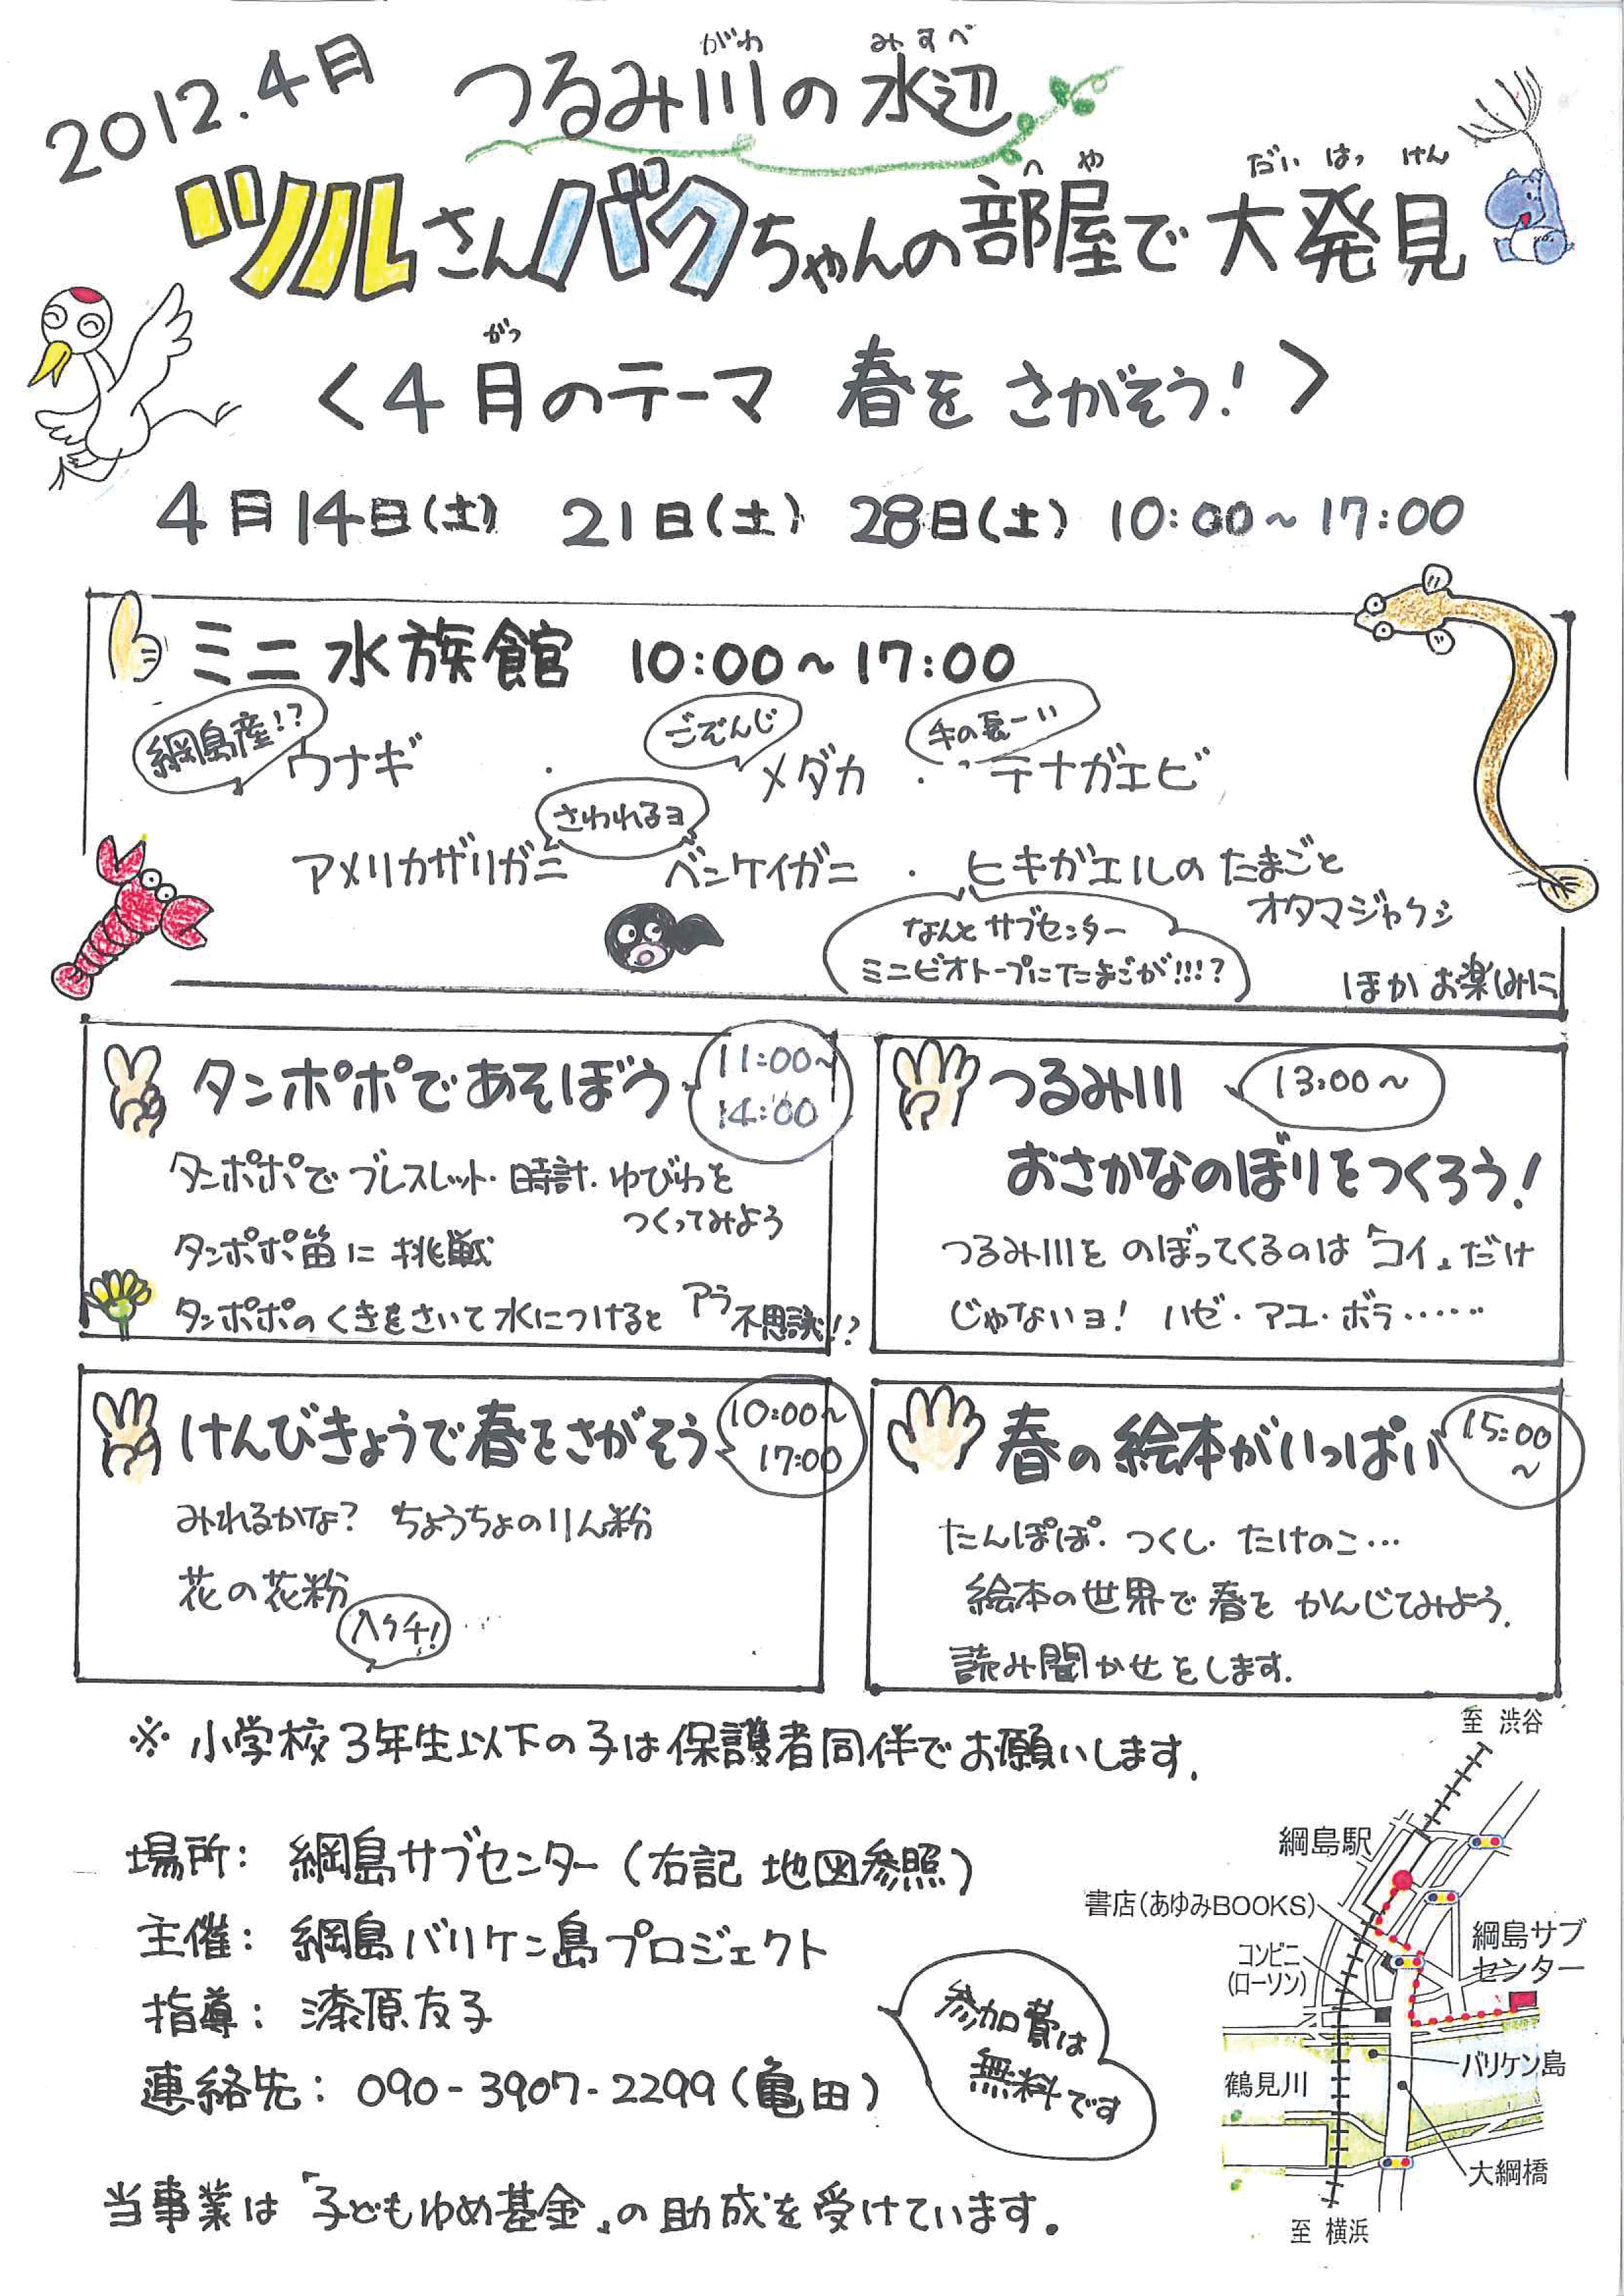 2012.4月
がわ みずべ
つるみ川の水辺
へや だいはっけん
ツルさんバクちゃんの部屋で大発見
がつ
〈4月のテーマ 春をさがそう!〉
4月14日(土) 21日(土) 28日(土) 10:00～17:00
ミニ水族館 10:00～17:00
綱島産!? ごぞんじ 手の長ーい
ウナギ ・ メダカ ・ テナガエビ
さわれるヨ
アメリカザリガニ ベンケイガニ ・ ヒキガエルのたまごと
オタマジャクシ
なんとサブセンター
ミニビオトープにたまごが!!!?
ほかお楽しみに
タンポポであそぼう 11:00～
14:00
タンポポでブレスレット・時計・ゆびわを
つくってみよう
タンポポ笛に挑戦
タンポポのくきをさいて水につけると アラ
不思議!?
つるみ川 13:00～
おさかなのぼりをつくろう!
つるみ川をのぼってくるのは「コイ」だけ
じゃないヨ! ハゼ・アユ・ボラ……
けんびきょうで春をさがそう 10:00～
17:00
みれるかな? ちょうちょのりん粉
花の花粉
ハクチ! ‥
春の絵本がいっぱい 15:00
～
たんぽぽ・つくし・たけのこ…
絵本の世界で春をかんじてみよう.
読み聞かせをします.
※小学校3年生以下の子は保護者同伴でお願いします.
場所: 綱島サブセンター(右記 地図参照)
主催: 綱島バリケン島プロジェクト
指導: 漆原友子
連絡先: 090-3907-2299(亀田)
参加費は
無料です
当事業は「子どもゆめ基金」の助成を受けています。
至 渋谷
綱島駅
書店(あゆみBOOKS)
綱島サブ
センター
コンビニ
(ローソン)
バリケン島
鶴見川
大綱橋
至 横浜